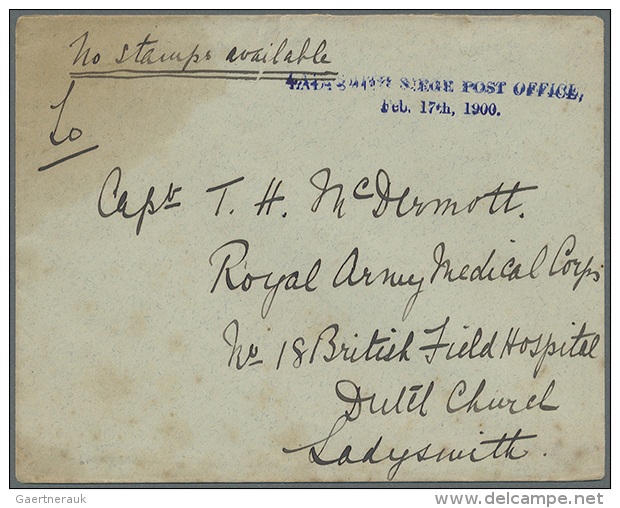 No stamps available
LADYSMITH SIEGE POST OFFICE,
Feb. 17th, 1900.
To
Capt T. H. McDermott.
Royal Army Medical Corps
No 18 British Field Hospital
Dutch Church
Ladysmith.
Gaertnerauk
delcampe.net